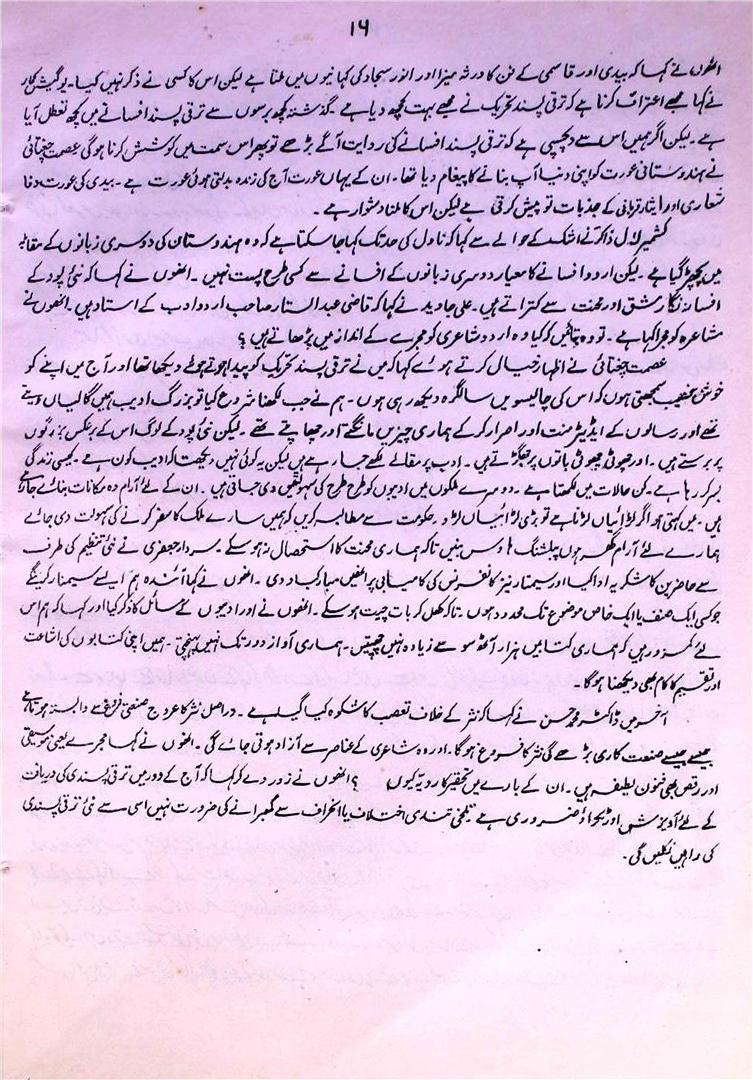 ۱۶
انھوں نے کہا کہ بیدی اور قاسمی کے فن کا ورثہ میزا اور انور سجاد کی کہانیوں میں ملتا ہے لیکن اس کا کسی نے ذکر نہیں کیا۔ یوگیش کمار
نے کہا مجھے اعتراف کرنا ہے کہ ترقی پسند تحریک نے مجھے بہت کچھ دیا ہے۔ گذشتہ کچھ برسوں سے ترقی پسند افسانے میں کچھ تعطل آیا
ہے۔ لیکن اگر ہمیں اس سے دلچسپی ہے کہ ترقی پسند افسانے کی روایت آگے بڑھے تو پھر اس سمت میں کوشش کرنا ہوگی عصمت چغتائی
نے ہندوستانی عورت کو اپنی دنیا آپ بنانے کا پیغام دیا تھا۔ ان کے یہاں عورت آج کی زندہ بدلتی ہوئی عورت ہے۔ بیدی کی عورت وفا
شعاری اور ایثار قربانی کے جذبات تو پیش کرتی ہے لیکن اس کا ملنا دشوار ہے۔
کشمیر لال ذاکر نے اشک کے حوالے سے کہا کہ ناول کی حد تک کہا جا سکتا ہے کہ وہ ہندوستان کی دوسری زبانوں کے مقابلہ
میں پچھڑ گیا ہے۔ لیکن اردو افسانے کا معیار دوسری زبانوں کے افسانے سے کسی طرح پست نہیں۔ انھوں نے کہا کہ نئی پود کے
افسانہ نگار مشق اور محنت سے کتراتے ہیں۔ علی جاوید نے کہا کہ قاضی عبدالستار صاحب اردو ادب کے استاد ہیں۔ انھوں نے
مشاعرہ کو مجرا کہا ہے۔ تو وہ بتائیں کہ کیا وہ اردو شاعری کو مجرے کے انداز میں پڑھاتے ہیں؟
عصمت چغتائی نے اظہار خیال کرتے ہوئے کہا کہ میں نے ترقی پسند تحریک کو پیدا ہوتے ہوئے دیکھا تھا اور آج میں اپنے کو
خوش نصیب سمجھتی ہوں کہ اس کی چالیسویں سالگرہ دیکھ رہی ہوں۔ ہم نے جب لکھنا شروع کیا تو بزرگ ادیب ہمیں گالیاں دیتے
تھے اور رسالوں کے ایڈیٹر منت اور اصرار کر کے ہماری چیزیں مانگتے اور چھاپتے تھے۔ لیکن نئی پود کے لوگ اس کے برعکس بزرگوں
پر برستے ہیں۔ اور چھوٹی چھوٹی باتوں پر جھگڑتے ہیں۔ ادب پر مقالے لکھے جا رہے ہیں لیکن یہ کوئی نہیں دیکھتا کہ ادیب کون ہے۔ کیسی زندگی
بسر کر رہا ہے۔ کن حالات میں لکھتا ہے۔ دوسرے ملکوں میں ادیبوں کو طرح طرح کی سہولتیں دی جاتی ہیں۔ ان کے لئے آرام دہ مکانات بنائے جا رہے
ہیں۔ میں کہتی ہو اگر لڑائیاں لڑنا ہے تو بڑی لڑائیاں لڑو۔ حکومت سے مطالبہ کریں کہ ہمیں سارے ملک کا سفر کرنے کی سہولت دی جائے
ہمارے لئے آرام گھر ہوں پبلشنگ ہاؤس بنیں تاکہ ہماری محنت کا استحصال نہ ہو سکے۔ سردار جعفری نے نئی تنظیم کی طرف
سے حاضرین کا شکریہ ادا کیا اور سیمینار نیز کانفرنس کی کامیابی پر انھیں مبارکباد دی۔ انھوں نے کہا آئندہ ہم ایسے سیمنار کرینگے
جو کسی ایک صنف یا ایک خاص موضوع تک محدود ہوں۔ تاکہ کھل کر بات چیت ہو سکے۔ انھوں نے اور ادیبوں کے مسائل کا ذکر کیا اور کہا کہ ہم اس
لئے کمزور ہیں کہ ہماری کتابیں ہزار آٹھ سو سے زیادہ نہیں چھپتیں۔ ہماری آواز دور تک نہیں پہنچتی۔ ہمیں اپنی کتابوں کی اشاعت
اور تقسیم کا کام بھی دیکھنا ہوگا۔
آخر میں ڈاکٹر محمد حسن نے کہا کہ نثر کے خلاف تعصب کا شکوہ کیا گیا ہے۔ دراصل نثر کا عروج صنعتی فروغ سے وابستہ ہوتا ہے
جیسے جیسے صنعت کاری بڑھے گی نثر کا فروغ ہوگا۔ اور وہ شاعری کے عناصر سے آزاد ہوتی جائے گی۔ انھوں نے کہا مجرے یعنی موسیقی
اور رقص بھی فنون لطیفہ ہیں۔ ان کے بارے میں تحقیر کا رویہ کیوں؟ انھوں نے زور دے کر کہا کہ آج کے دور میں ترقی پسندی کی دریافت
کے لئے آویزش اور ٹکراؤ ضروری ہے تلخی تندی اختلاف یا انحراف سے گھبرانے کی ضرورت نہیں اسی سے نئی ترقی پسندی
کی راہیں نکلیں گی۔